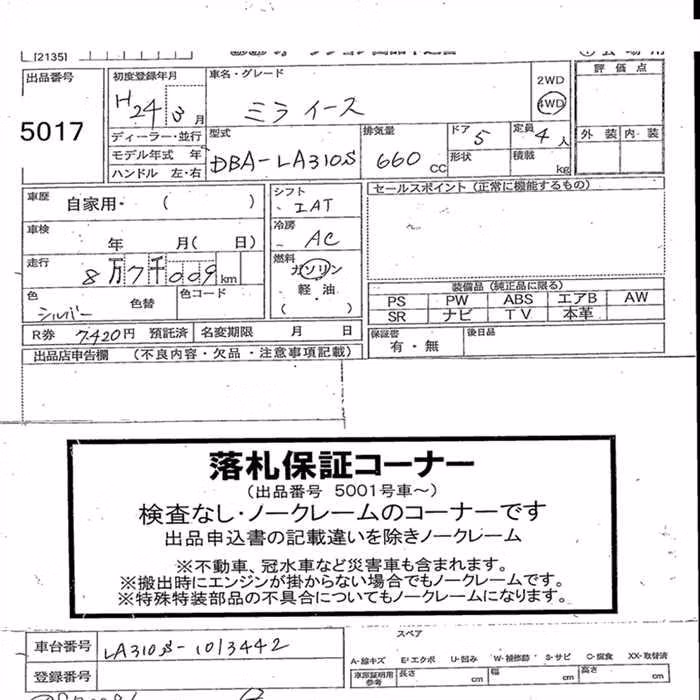 [2135]
出品番号 5017
初度登録年月 H24 3 月
車名・グレード ミライース
2WD
4WD
評価点
外装 内装
ディーラー・並行
モデル年式 年
ハンドル 左・右
型式 DBA-LA310S
排気量 660 CC
ドア 5
形状
定員 4 人
積載 kg
車歴 自家用・ ( )
シフト IAT
セールスポイント (正常に機能するもの)
車検 年 月( 日)
冷房 AC
走行 8万7千009km
燃料 ガソリン
軽・油
( )
色 シルバー 色替
色コード
装備品 (純正品に限る)
PS PW ABS エアB AW
SR ナビ TV 本革
R券 7420円 預託済 名変期限 月 日
保証書 有・無
後日品
出品店申告欄 (不良内容・欠品・注意事項記載)
落札保証コーナー
(出品番号 5001号車～)
検査なし・ノークレームのコーナーです
出品申込書の記載違いを除きノークレーム
※不動車、冠水車など災害車も含まれます。
※搬出時にエンジンが掛からない場合でもノークレームです。
※特殊特装部品の不具合についてもノークレームになります。
車台番号 LA310S-1013442
登録番号
スペア
A-線キズ E-エクボ U-凹み W-補修跡 S-サビ C-腐食 XX-取替済
車庫証明用参考 長さ cm 幅 cm 高さ cm